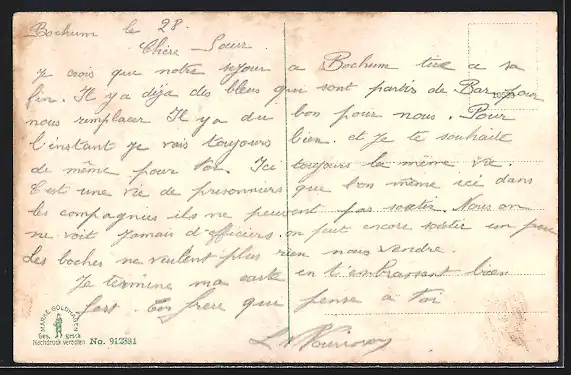 Bochum le 28.
Chère Sœur
Je crois que notre sejour a Bochum tire a sa
fin. Il y a déja des bleus qui sont partis de Bar pour
nous remplacer Il y a du bon pour nous. Pour
l'instant je vais toujours bien. et Je te souhaite
de même pour toi. Ici toujours la même vie.
C'est une vie de prisonniers que bon même ici dans
les compagnies ils ne peuvent pas sortir. Nous on
ne voit Jamais d'officiers. on peut encore sortir un peu
Les boches ne veulent plus rien nous vendre.
Je termine ma carte en t'embrassant bien
fort. Ton frère qui pense à toi
L
MARKE GOLDHÜTER
Ges. gesch.
Nachdruck verboten No. 912881